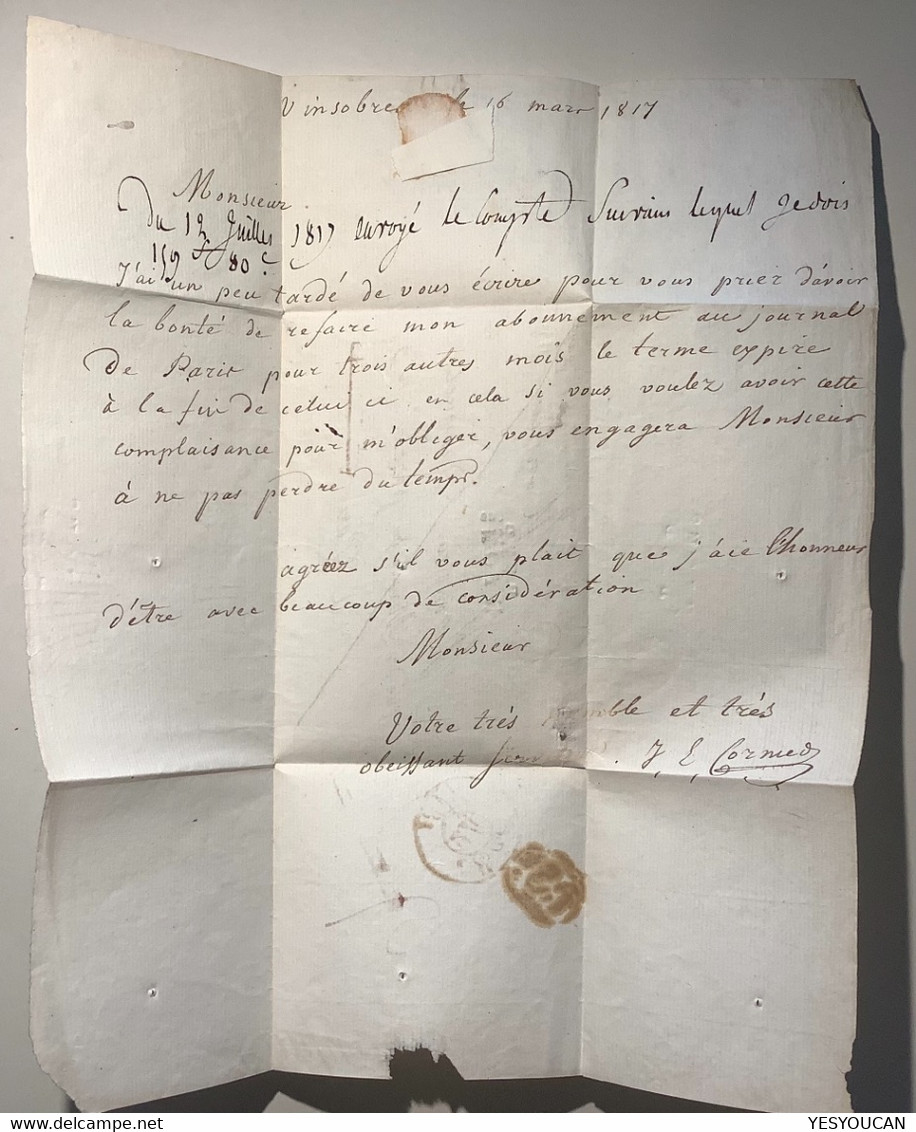 Vinsobres le 16 mars 1817
Monsieur
du 12 Juillet 1817 envoyé le Compte Suivant lequel Je dois
159 80 c
J'ai un peu tardé de vous écrire pour vous prier d'avoir
la bonté de refaire mon abonnement au journal
de Paris pour trois autres mois le terme expire
à la fin de celui ci en cela si vous voulez avoir cette
complaisance pour m'obliger, vous engagera Monsieur
à ne pas perdre du temps.
agréez s'il vous plait que j'aie l'honneur
d'être avec beaucoup de considération
Monsieur
Votre très humble et très
obeissant J E Cornud
YESYOUCAN